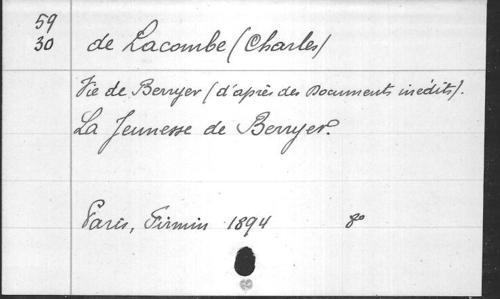 59
30
de Lacombe (Charles)
Vie de Berryer (d'après des Documents inédits).
La Jeunesse de Berryer.
Paris, Firmin 1894 8º